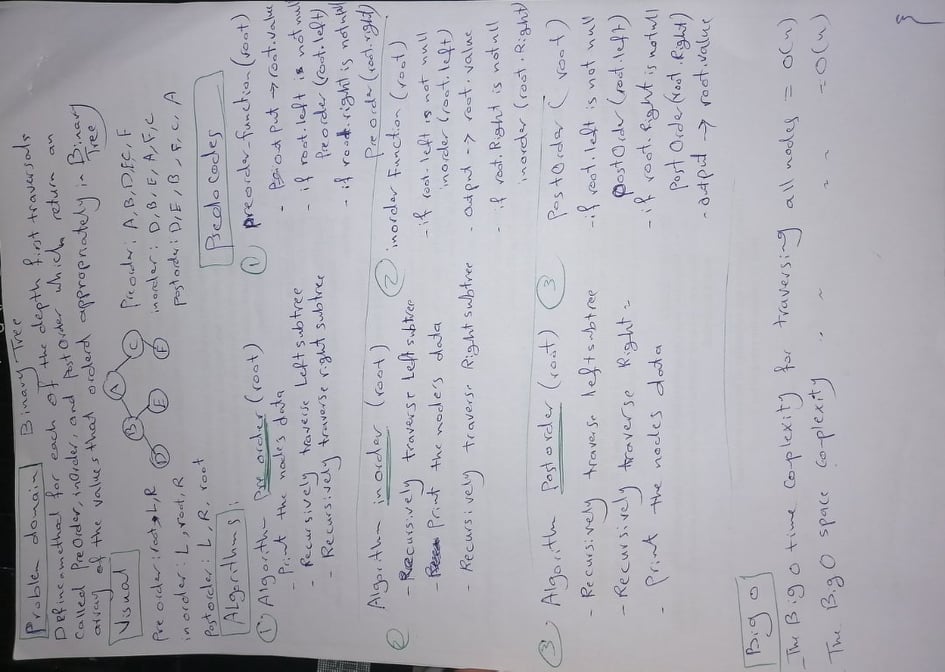 Problem domain Binary Tree
Define a method for each of the depth first traversals
called PreOrder, inorder, and PostOrder which return an
array of the values that orderd appropriately in Binary
Tree
Visual
Pre order: root, L, R
inorder: L, root, R
Postorder: L, R, root
A
B
C
D
E
F
Preorder: A, B, D, E, C, F
inorder: D, B, E, A, F, C
postorder: D, E, B, F, C, A
Algorithms:
① Algorithm Pre order (root)
- Print the nodes data
- Recursively traverse Left subtree
- Recursively traverse right subtree
② Algorithm inorder (root)
- Recursively traverse Left subtree
- Print the nodes data
- Recursively traverse Right subtree
③ Algorithm Postorder (root)
- Recursively traverse left subtree
- Recursively traverse Right =
- Print the nodes data
Psedo codes
① preorder-function (root)
- out put → root.value
- if root.left is not null
Preorder (root.left)
- if root.right is not null
Preorder (root.right)
② inorder Function (root)
- if root.left is not null
inorder (root.left)
- output → root.value
- if root.Right is not null
inorder (root.Right)
③ PostOrder (root)
- if root.left is not null
PostOrder (root.left)
- if root.Right is not null
Post Order (root.Right)
- output → root.value
Big O
- The Big O time complexity for traversing all nodes = O(n)
The Big O space complexity " " " " = O(n)